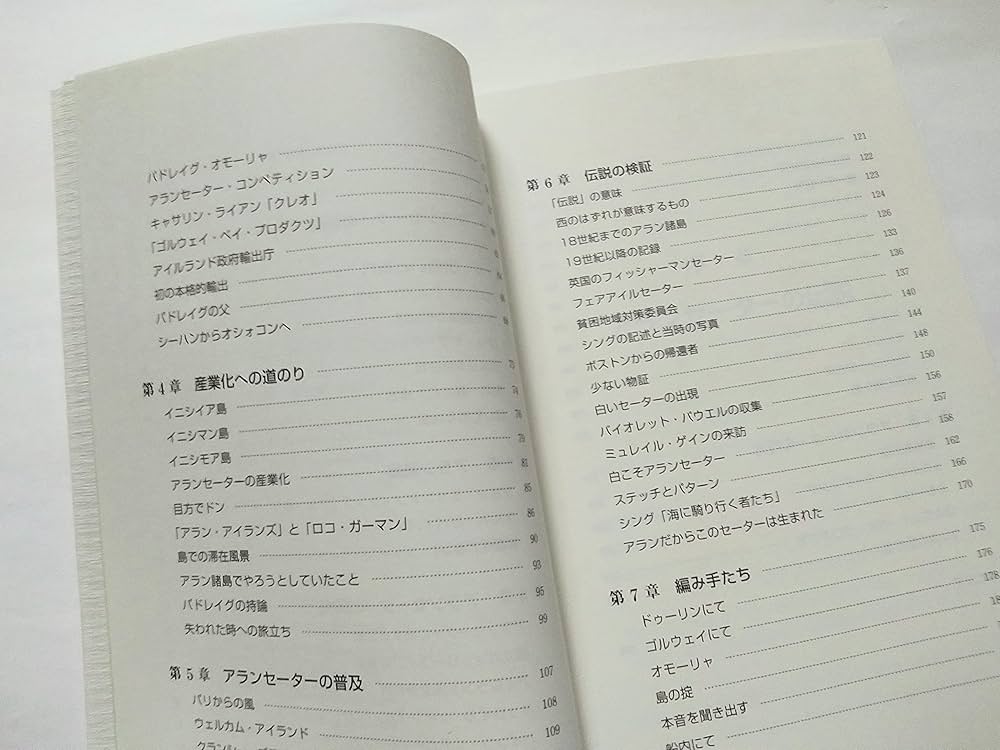 パドレイグ・オモーリャ
アランセーター・コンペティション
キャサリン・ライアン「クレオ」
「ゴルウェイ・ベイ・プロダクツ」
アイルランド政府輸出庁
初の本格的輸出
パドレイグの父
シーハンからオショコンへ
第4章 産業化への道のり 73
イニシイア島 74
イニシマン島 76
イニシモア島 79
アランセーターの産業化 81
目方でドン 85
「アラン・アイランズ」と「ロコ・ガーマン」 86
島での滞在風景 90
アラン諸島でやろうとしていたこと 93
パドレイグの持論 95
失われた時への旅立ち 99
第5章 アランセーターの普及 107
パリからの風 108
ウェルカム・アイランド 109
第6章 伝説の検証 121
「伝説」の意味 122
西のはずれが意味するもの 123
18世紀までのアラン諸島 124
19世紀以降の記録 126
英国のフィッシャーマンセーター 133
フェアアイルセーター 136
貧困地域対策委員会 137
シングの記述と当時の写真 140
ボストンからの帰還者 144
少ない物証 148
白いセーターの出現 150
バイオレット・パウエルの収集 156
ミュレイル・ゲインの来訪 157
白こそアランセーター 158
ステッチとパターン 162
シング「海に騎り行く者たち」 166
アランだからこのセーターは生まれた 170
第7章 編み手たち 175
ドゥーリンにて 176
ゴルウェイにて 178
オモーリャ
島の掟
本音を聞き出す
船内にて